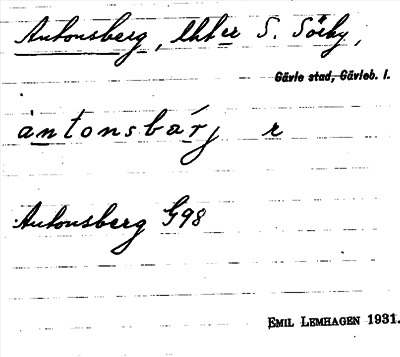 Antonsberg, lhter S. Sörby,
Gävle stad, Gävleb. l.
àntonsbárj r
Antonsberg G98
EMIL LEMHAGEN 1931.